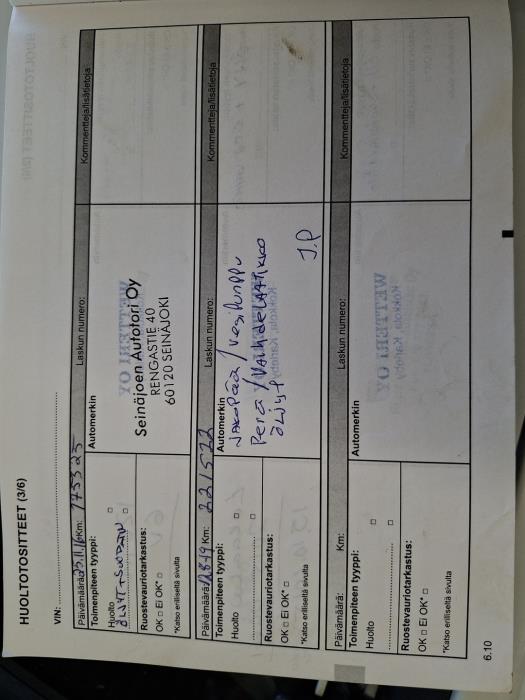 HUOLTOTOSITTEET (3/6)
VIN:
Päivämäärä: 25.11.16 Km: 175325 Laskun numero: Kommentteja/lisätietoja
Toimenpiteen tyyppi: Automerkin
Huolto
ÖLJYT+SUODATIN
Seinäjoen Autotori Oy
RENGASTIE 40
60120 SEINÄJOKI
Ruostevauriotarkastus:
OK □ Ei OK* □
*Katso erilliseltä sivulta
Päivämäärä: Km: 221522 Laskun numero: Kommentteja/lisätietoja
Toimenpiteen tyyppi: Automerkin
Huolto □
JAKOPÄÄ / vesipumppu
Perä / VAIHDELAATIKKO
ÖLJYT
J.P
Ruostevauriotarkastus:
OK □ Ei OK* □
*Katso erilliseltä sivulta
Päivämäärä: Km: Laskun numero: Kommentteja/lisätietoja
Toimenpiteen tyyppi: Automerkin
Huolto □
Ruostevauriotarkastus:
OK □ Ei OK* □
*Katso erilliseltä sivulta
6.10